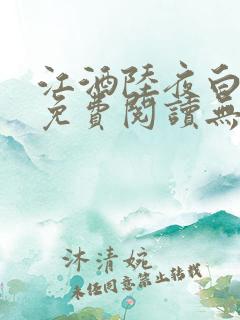 江酒陸夜白
免費閱讀無
沐清婉
未经同意禁止转载